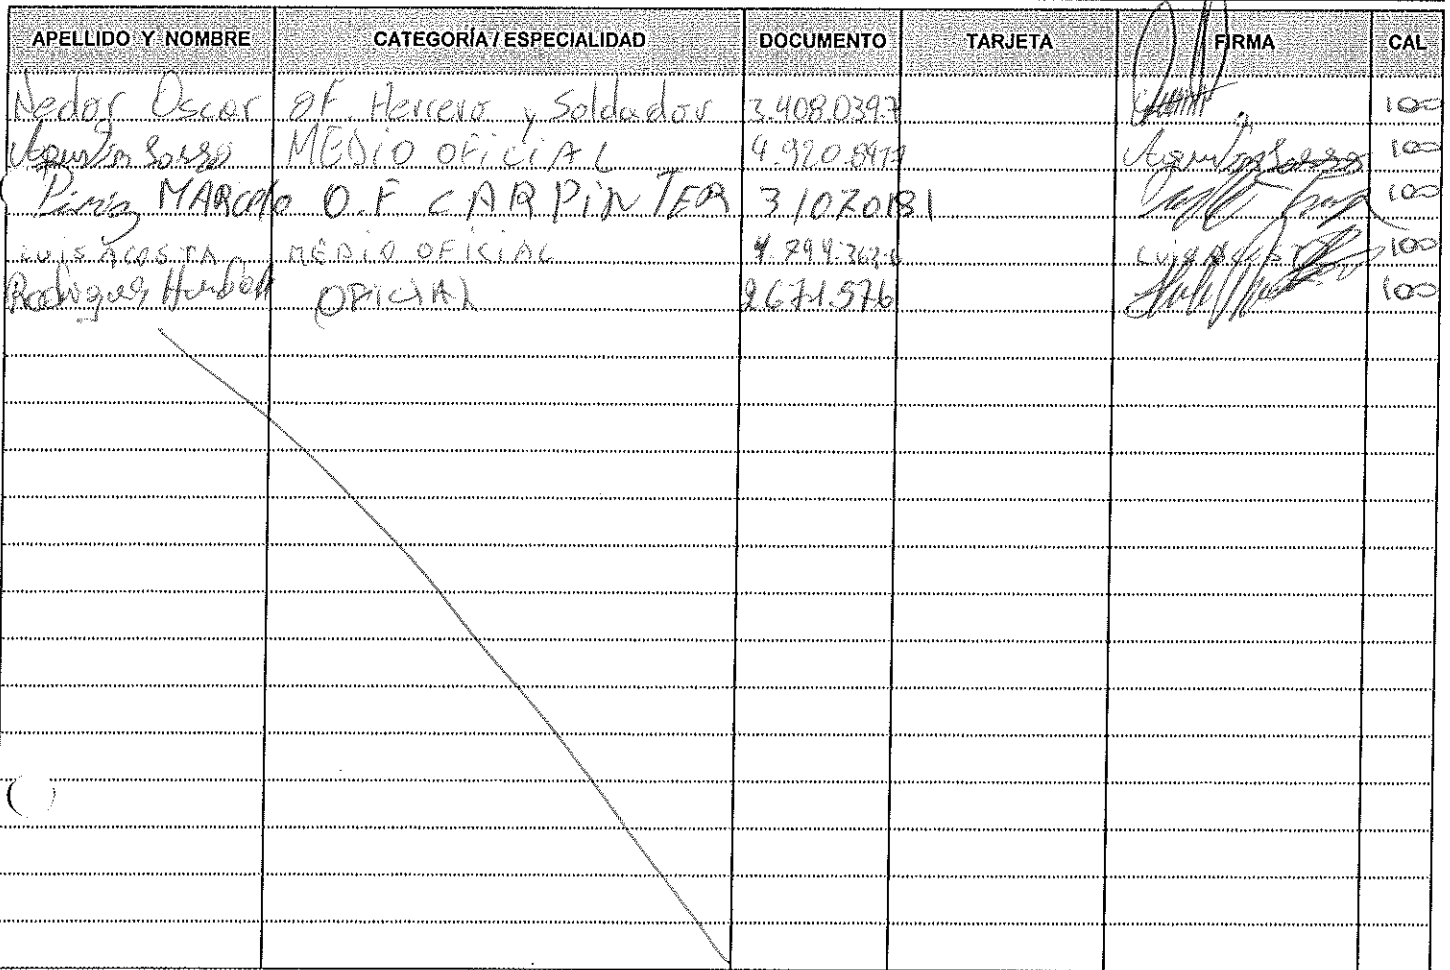 APELLIDO Y NOMBRE CATEGORÍA / ESPECIALIDAD DOCUMENTO TARJETA FIRMA CAL
Nedor Oscar OF. Herrero y Soldador 3.408.039.7 100
Agustin Sosa MEDIO OFICIAL 4.920.847.7 Agustin Sosa 100
Piriz MARcelo O.F CARPINTER 31070181 100
LUIS ACOSTA MEDIO OFICIAL 4.799.363.6 LUIS ACOSTA 100
Rodrigues OFICIAL 2671.576 100